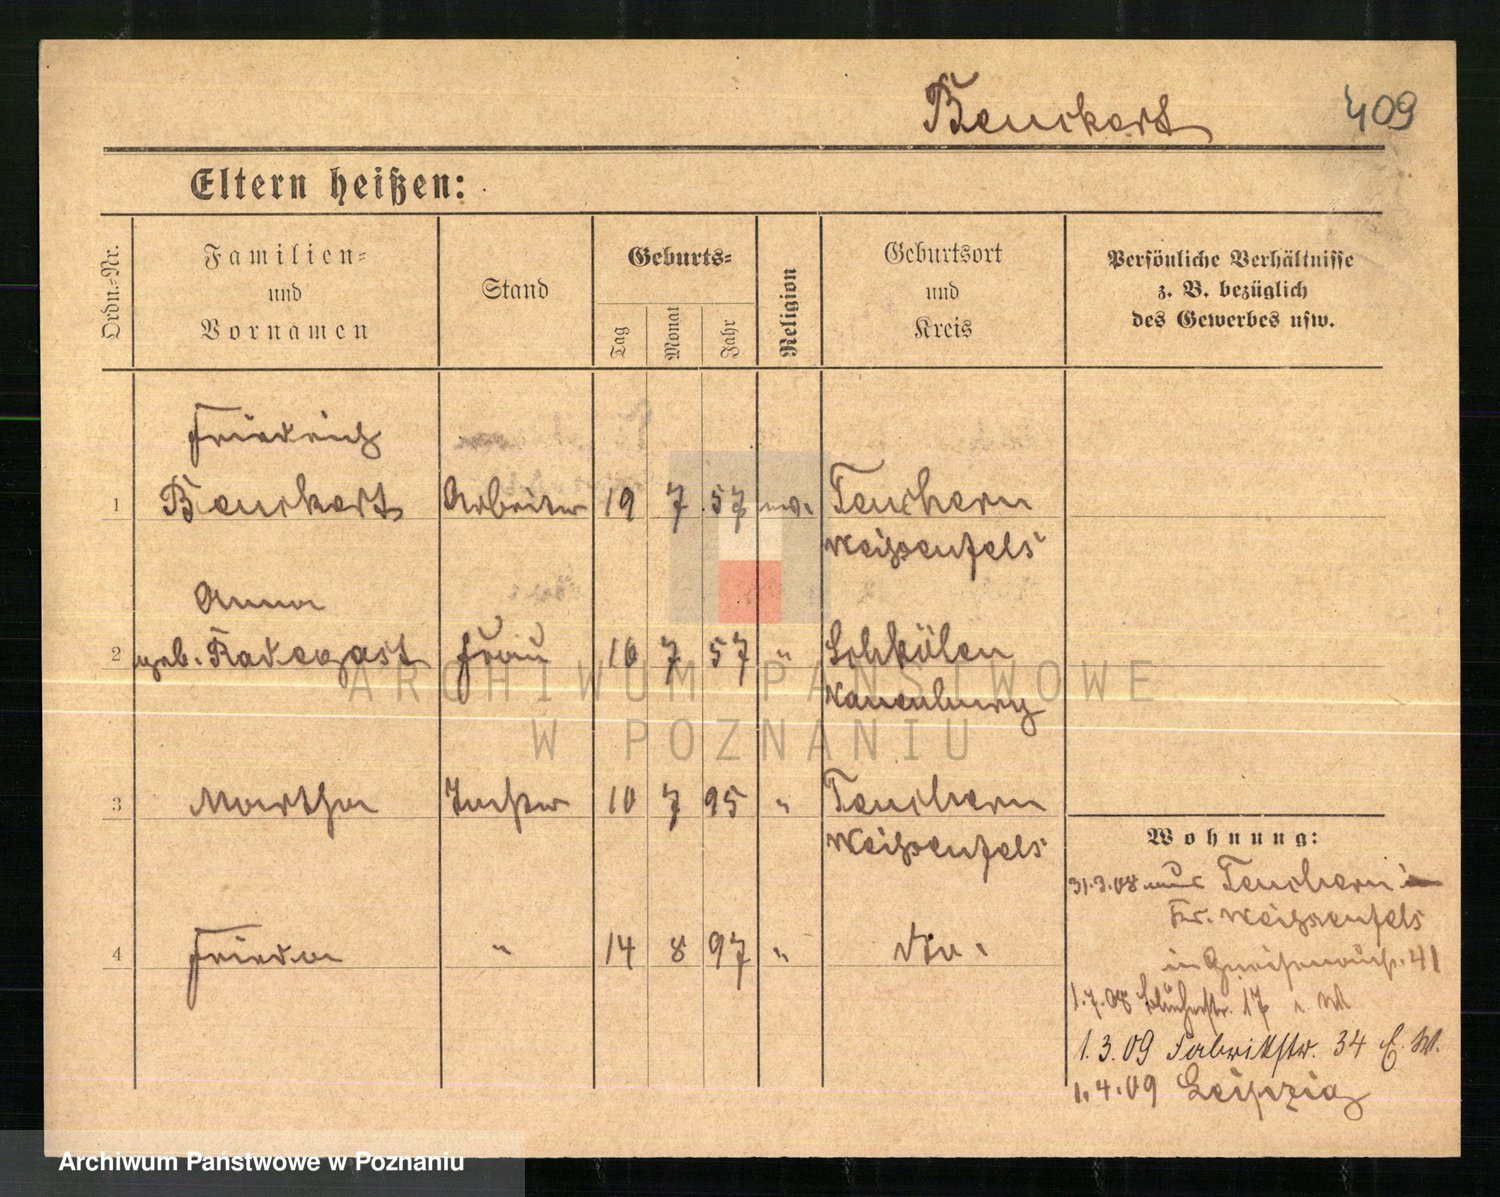 Beuckert 409
Eltern heißen:
Ordn.-Nr.
Familien-
und
Vornamen
Stand
Geburts-
Tag
Monat
Jahr
Religion
Geburtsort
und
Kreis
Persönliche Verhältnisse
z. B. bezüglich
des Gewerbes usw.
Friedrich
1 Beuckert Arbeiter 19 7 57 ev. Teuchern
Weißenfels
Anna
2 geb. Radegast Frau 16 7 57 "
3 Martha Tochter 10 7 95 " Teuchern
Weißenfels
4 Frieda " 14 8 97 "
Wohnung:
31.3.08 aus Teuchern
Kr. Weißenfels
in 41
1.7.08 Blücherstr. 17
1.3.09 Fabrikstr. 34 E. W.
1.4.09 Leipzig
ARCHIWUM PAŃSTWOWE
W POZNANIU
Archiwum Państwowe w Poznaniu